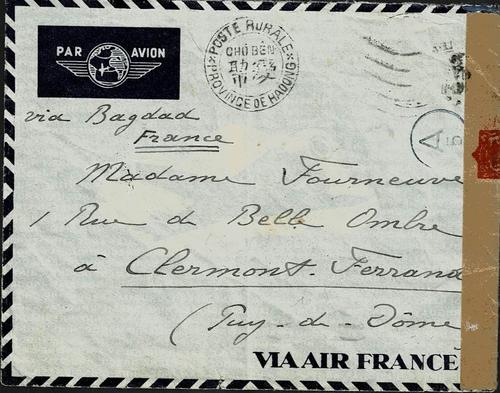 PAR AVION
POSTE RURALE
CHỢ BẾN
PROVINCE DE HADONG
A
via Bagdad
France
Madame Fourneuve
1 Rue de Belle Ombre
à Clermont-Ferrand
(Puy-de-Dôme
VIA AIR FRANCE